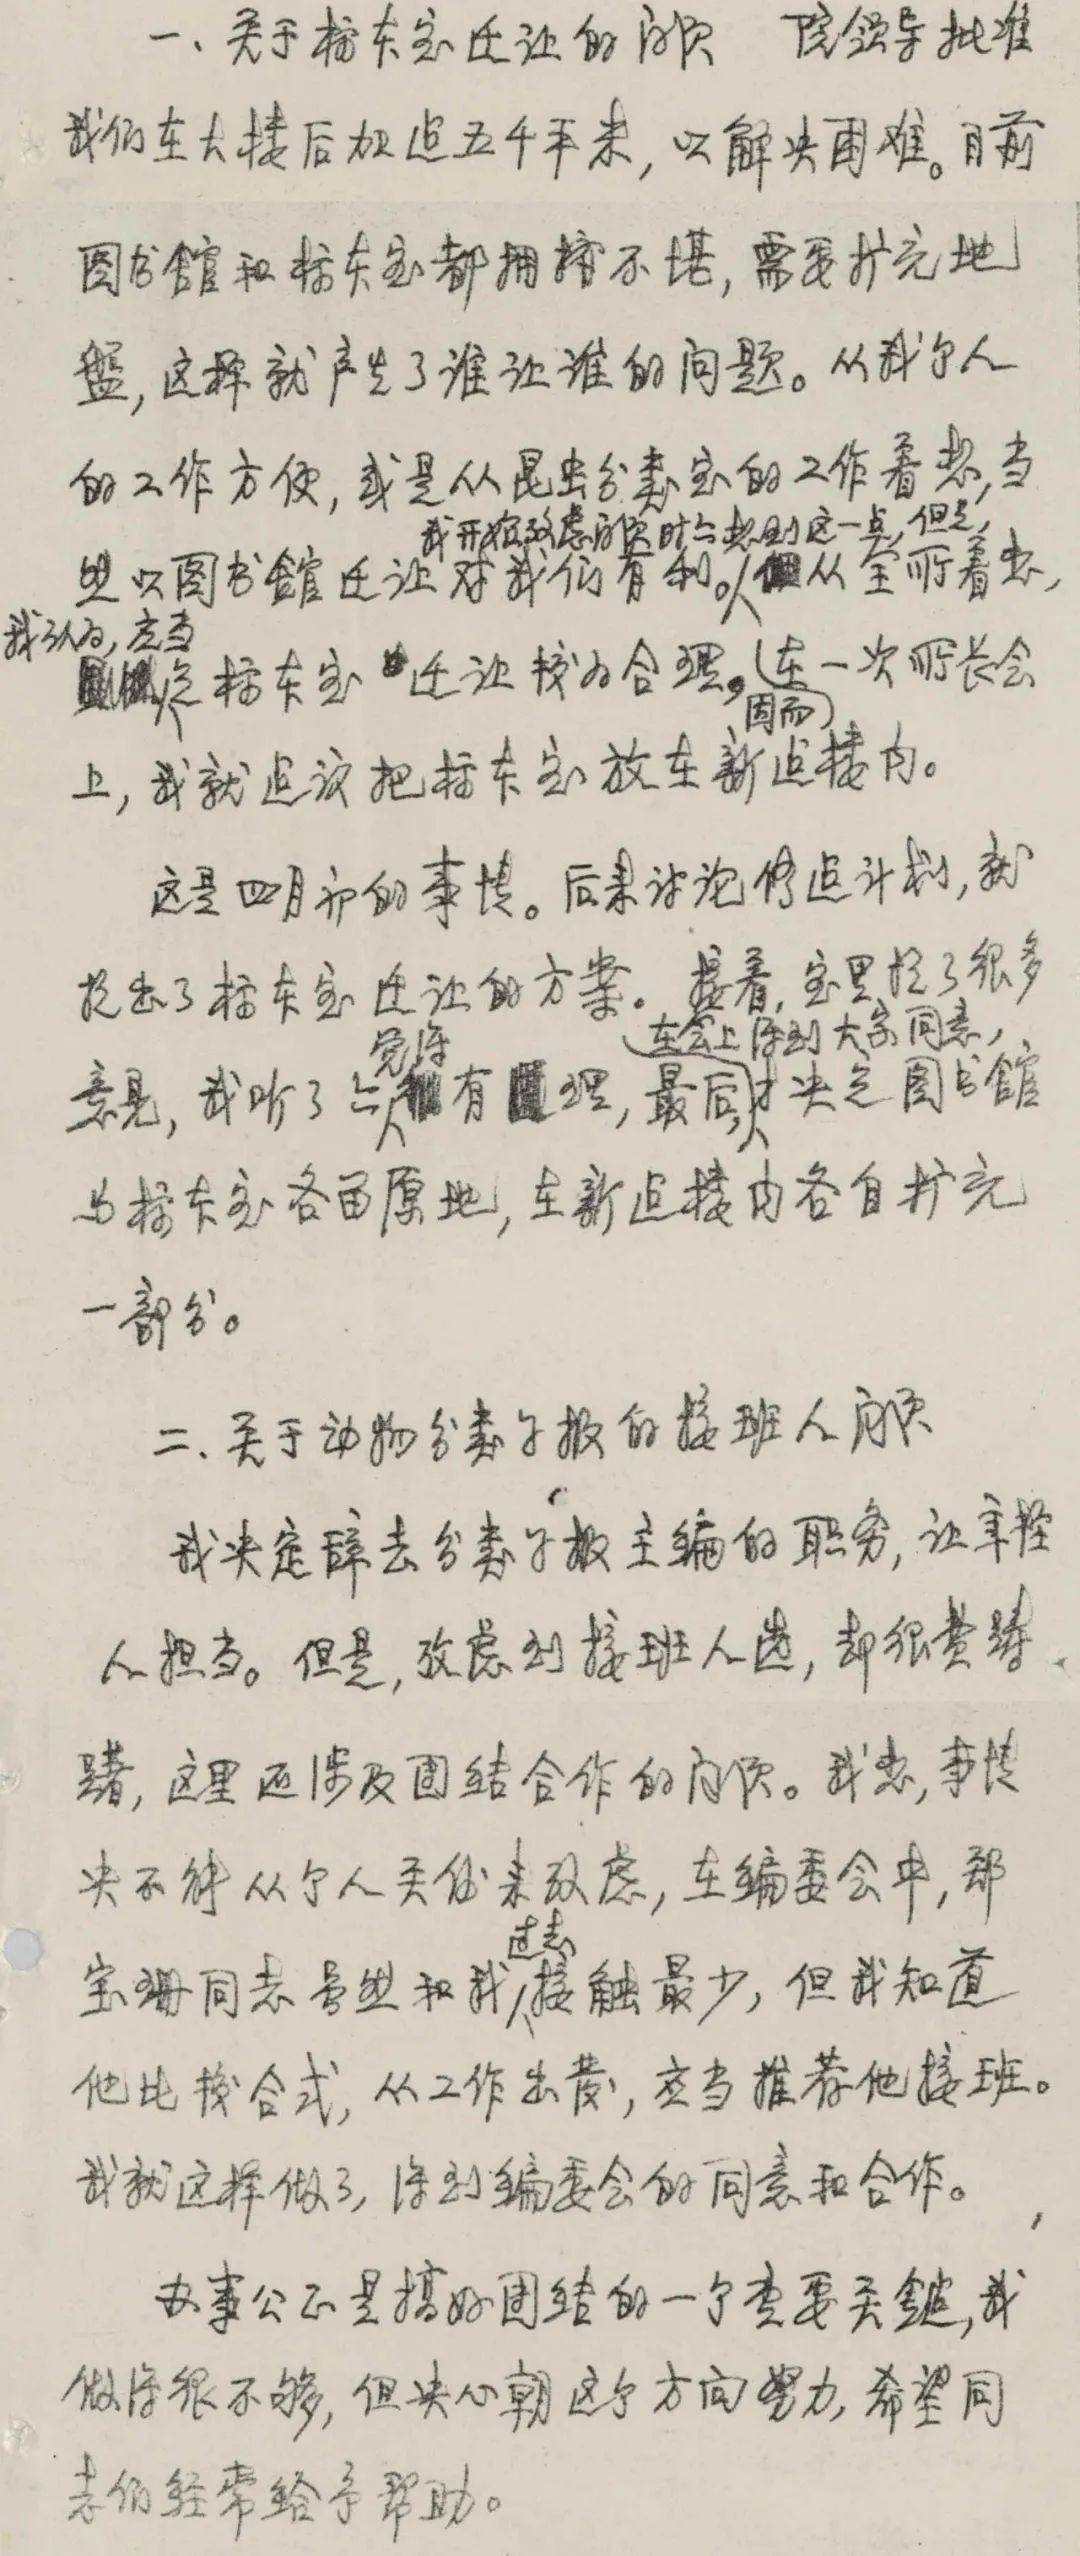 一、关于标本室迁让的问题 院领导批准
我们在大楼后加建五千平米，以解决困难。目前
图书馆和标本室都拥挤不堪，需要扩充地
盘，这样就产生了谁让谁的问题。从我个人
的工作方便，或是从昆虫分类室的工作着想，当
我开始考虑问题时亦想到这一点，但是，
然以图书馆迁让对我们有利。从全所着想，
我认为，应当
是标本室迁让较为合理。（在一次所长会
因而）
上，我就建议把标本室放在新建楼内。
这是四月初的事情。后来讨论修建计划，就
提出了标本室迁让的方案。接着，室里提了很多
觉得 在会上得到大家同意，
意见，我听了亦有理，最后才决定图书馆
与标本室各留原地，在新建楼内各自扩充
一部分。
二、关于动物分类学报的接班人问题
我决定辞去分类学报主编的职务，让年轻
人担当。但是，考虑到接班人选，却很费踌
躇，这里还涉及团结合作的问题。我想，事情
决不能从个人关系来考虑，在编委会中，郑
过去
宝珊同志虽然和我接触最少，但我知道
他比较合式，从工作出发，应当推荐他接班。
我就这样做了，得到编委会的同意和合作。
办事公正是搞好团结的一个重要关键，我
做得很不够，但决心朝这个方向努力，希望同
志们经常给予帮助。